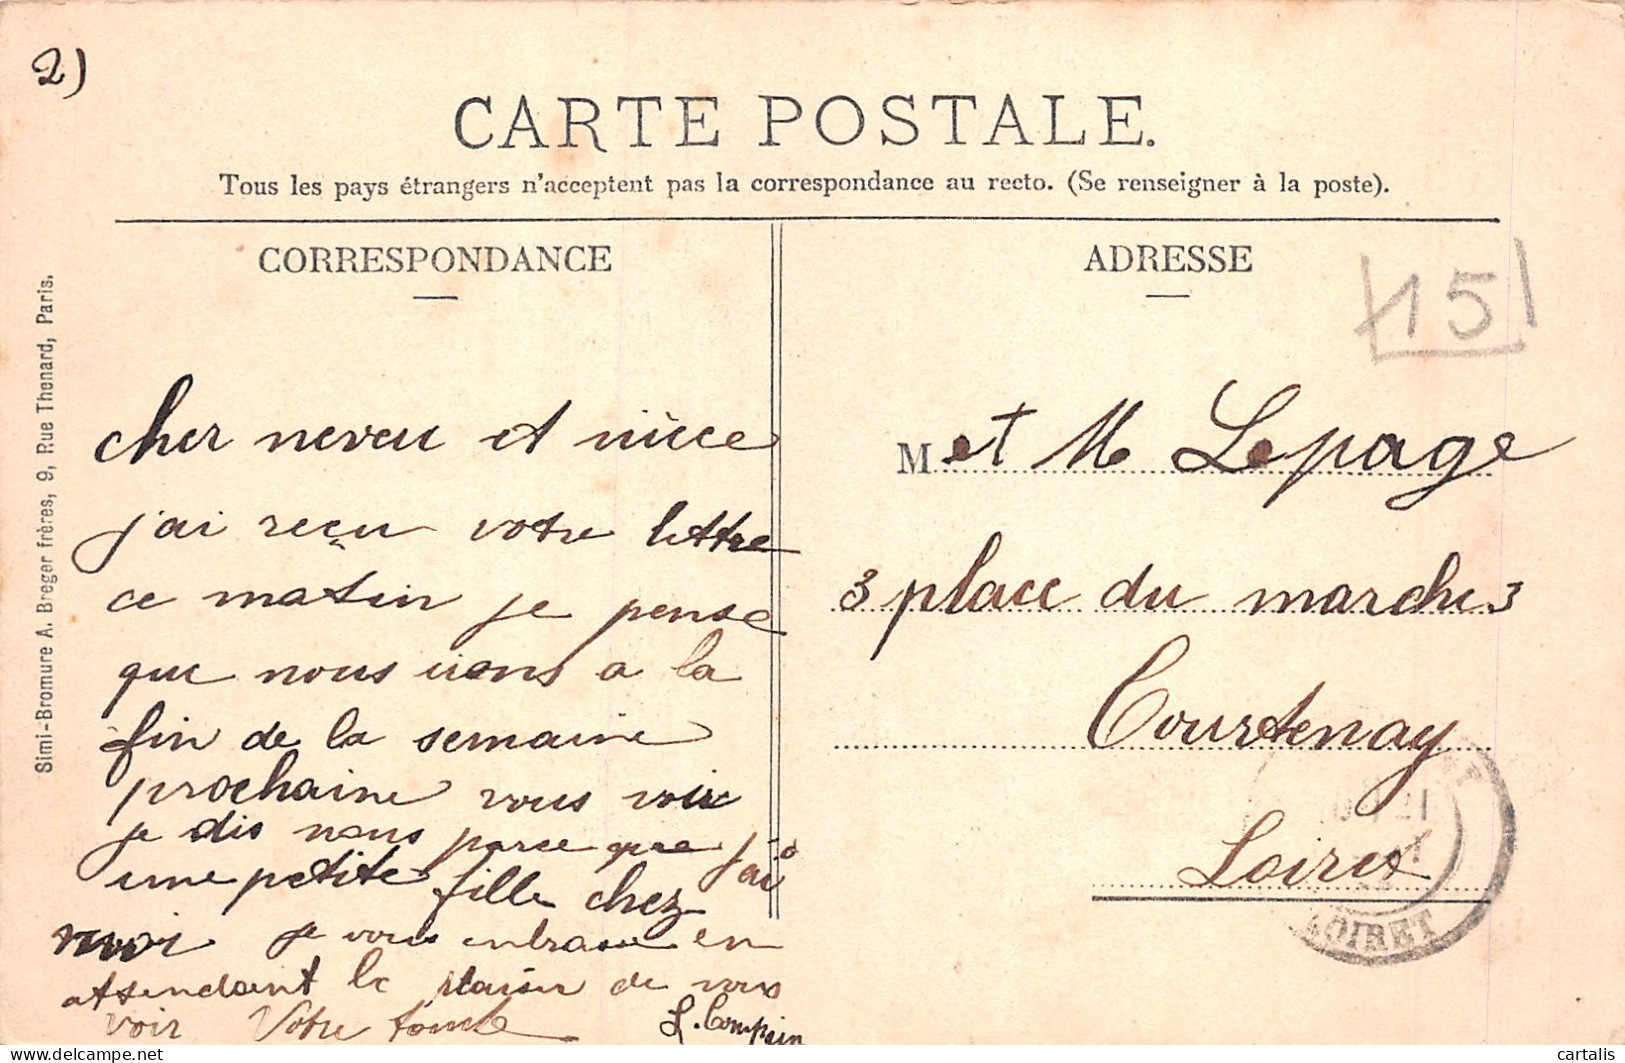 2)
CARTE POSTALE.
Tous les pays étrangers n'acceptent pas la correspondance au recto. (Se renseigner à la poste).
CORRESPONDANCE
cher neveu et nièce
j'ai reçu votre lettre
ce matin je pense
que nous irons a la
fin de la semaine
prochaine vous voir
je dis nous parce que j'ai
une petite fille chez
moi je vous embrasse en
attendant le plaisir de vous
voir Votre tante L. Compin
ADRESSE
15
M et M Lepage
3 place du marche 3
Courtenay
Loiret
LOIRET
Simi-Bromure A. Breger frères, 9, Rue Thenard, Paris.
cartalis